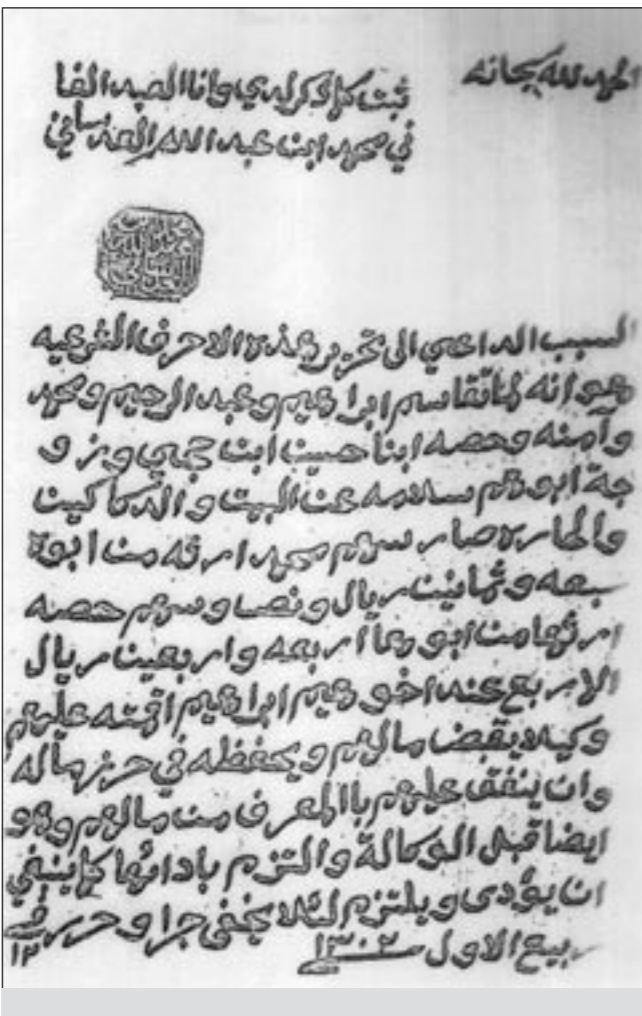 الحمد لله سبحانه
ثبت كلما ذكر لدي وانا العبد الفا
ني محمد ابن عبد الله
السبب الداعي الى تحرير هذه الاحرف الشرعيه
هو انه لما تقاسم ابراهيم وعبد الرحيم ومحمد
وآمنه وحصه ابنا حسين ابن حجي وزو
جة ابوهم سلامه عن البيت والدكاكين
والحاره صار سهم محمد ارثه من ابوة
سبعه وثمانين ريال ونص وسهم حصه
ارثها من ابوها اربعه واربعين ريال
الاربع عند اخوهيم ابراهيم اقمته عليهم
وكيلا يقبض مالهم ويحفظه في حرز ماله
وان ينفق عليهم باالمعرف من مالهم وهو
ايضا قبل الوكالة والتزم بادائها كما ينبغي
ان يؤدى ويلتزم لئلا يخفى جرا وحرر في ١٢
ربيع الاول ١٣٠٢